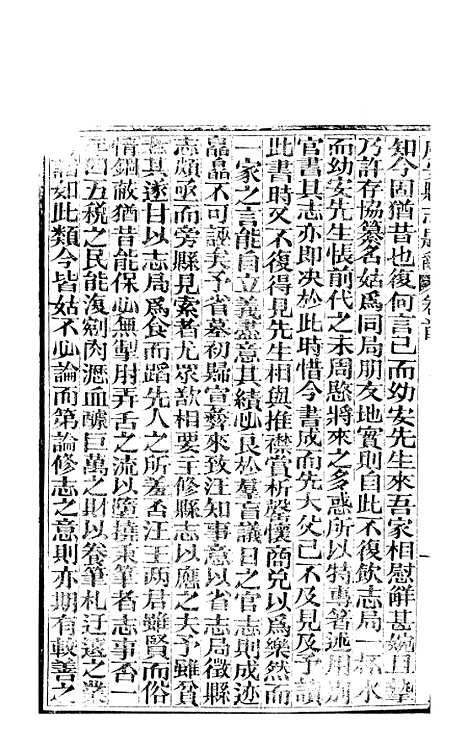 縣志是 卷首
知今固猶昔也復何言已而幼安先生來吾家相慰解甚 且摯
乃許存協纂名姑爲同局朋友地實則自此不復飲志局一桮水
而幼安先生悵前代之未周愍將來之多惑所以特專箸述用別
官書其志亦即决於此時惜今書成而先大父已不及見及予讀
此書時又不復得見先生相與推襟賞析罄懷商兌以爲樂然而
一家之言能自立義盡意其績必良於羣言議日之官志則成迹
皛皛不可誣矣予省墓初歸宣彜來致汪知事意以省志局徵縣
志頗亟而旁縣見索者尤眾欲相要主修縣志以應之夫予雖貧
甚其遂日以志局爲食而蹈先人之所羞舍汪王兩君雖賢而俗
情錮蔽猶昔能保必無掣肘弄舌之流以簧撓秉筆者志事否一
年四五稅之民能復剜肉瀝血醵巨萬之財以養筆札迂遠之業
如此類今皆姑不必論而第論修志之意則亦期有較善之